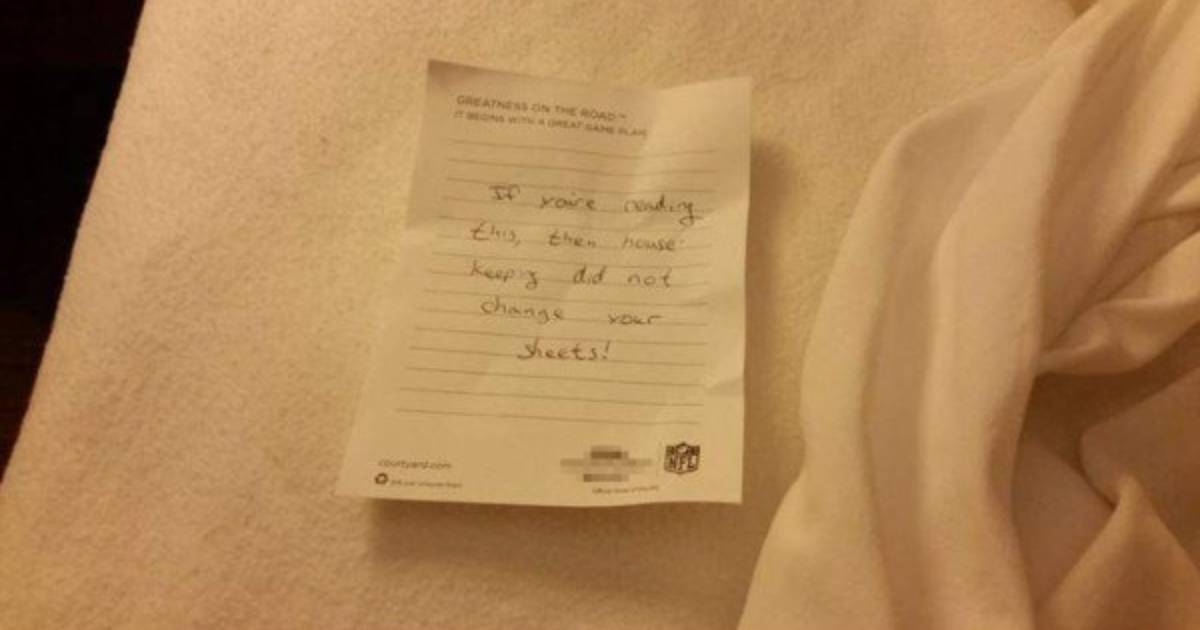 GREATNESS ON THE ROAD™
IT BEGINS WITH A GREAT GAME PLAN
If you're reading
this, then house-
keeping did not
change your
sheets!
courtyard.com
NFL